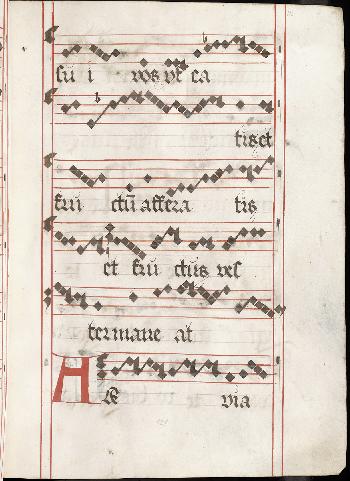 sū i vos vt ea
tis et
fru ctū affera tis
et fru ctus ves
ter mane at
A via